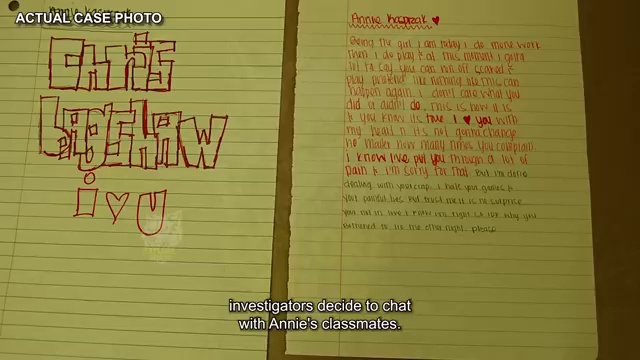 ACTUAL CASE PHOTO
Annie Kasprzak
CHRiS
BAgSHAW
i ♡ U
Annie Kasprzak ♥
Being the girl i am today i do more work
then i do play & at this moment i gotta
lot to say you can run off scared &
play pretend like nothing like this can
happen again. i don't care what you
did or didn't do. This is how it is
& you know its true i ♥ you with
my heart n it's not gonna change
no matter how many times you complain
i know ive put you through a lot of
pain & i'm sorry for that But im done
dealing with your crap. i hate you games &
your painful lies But trust me it is no surprise
you not in love i
to me the other night. please
investigators decide to chat
with Annie's classmates.